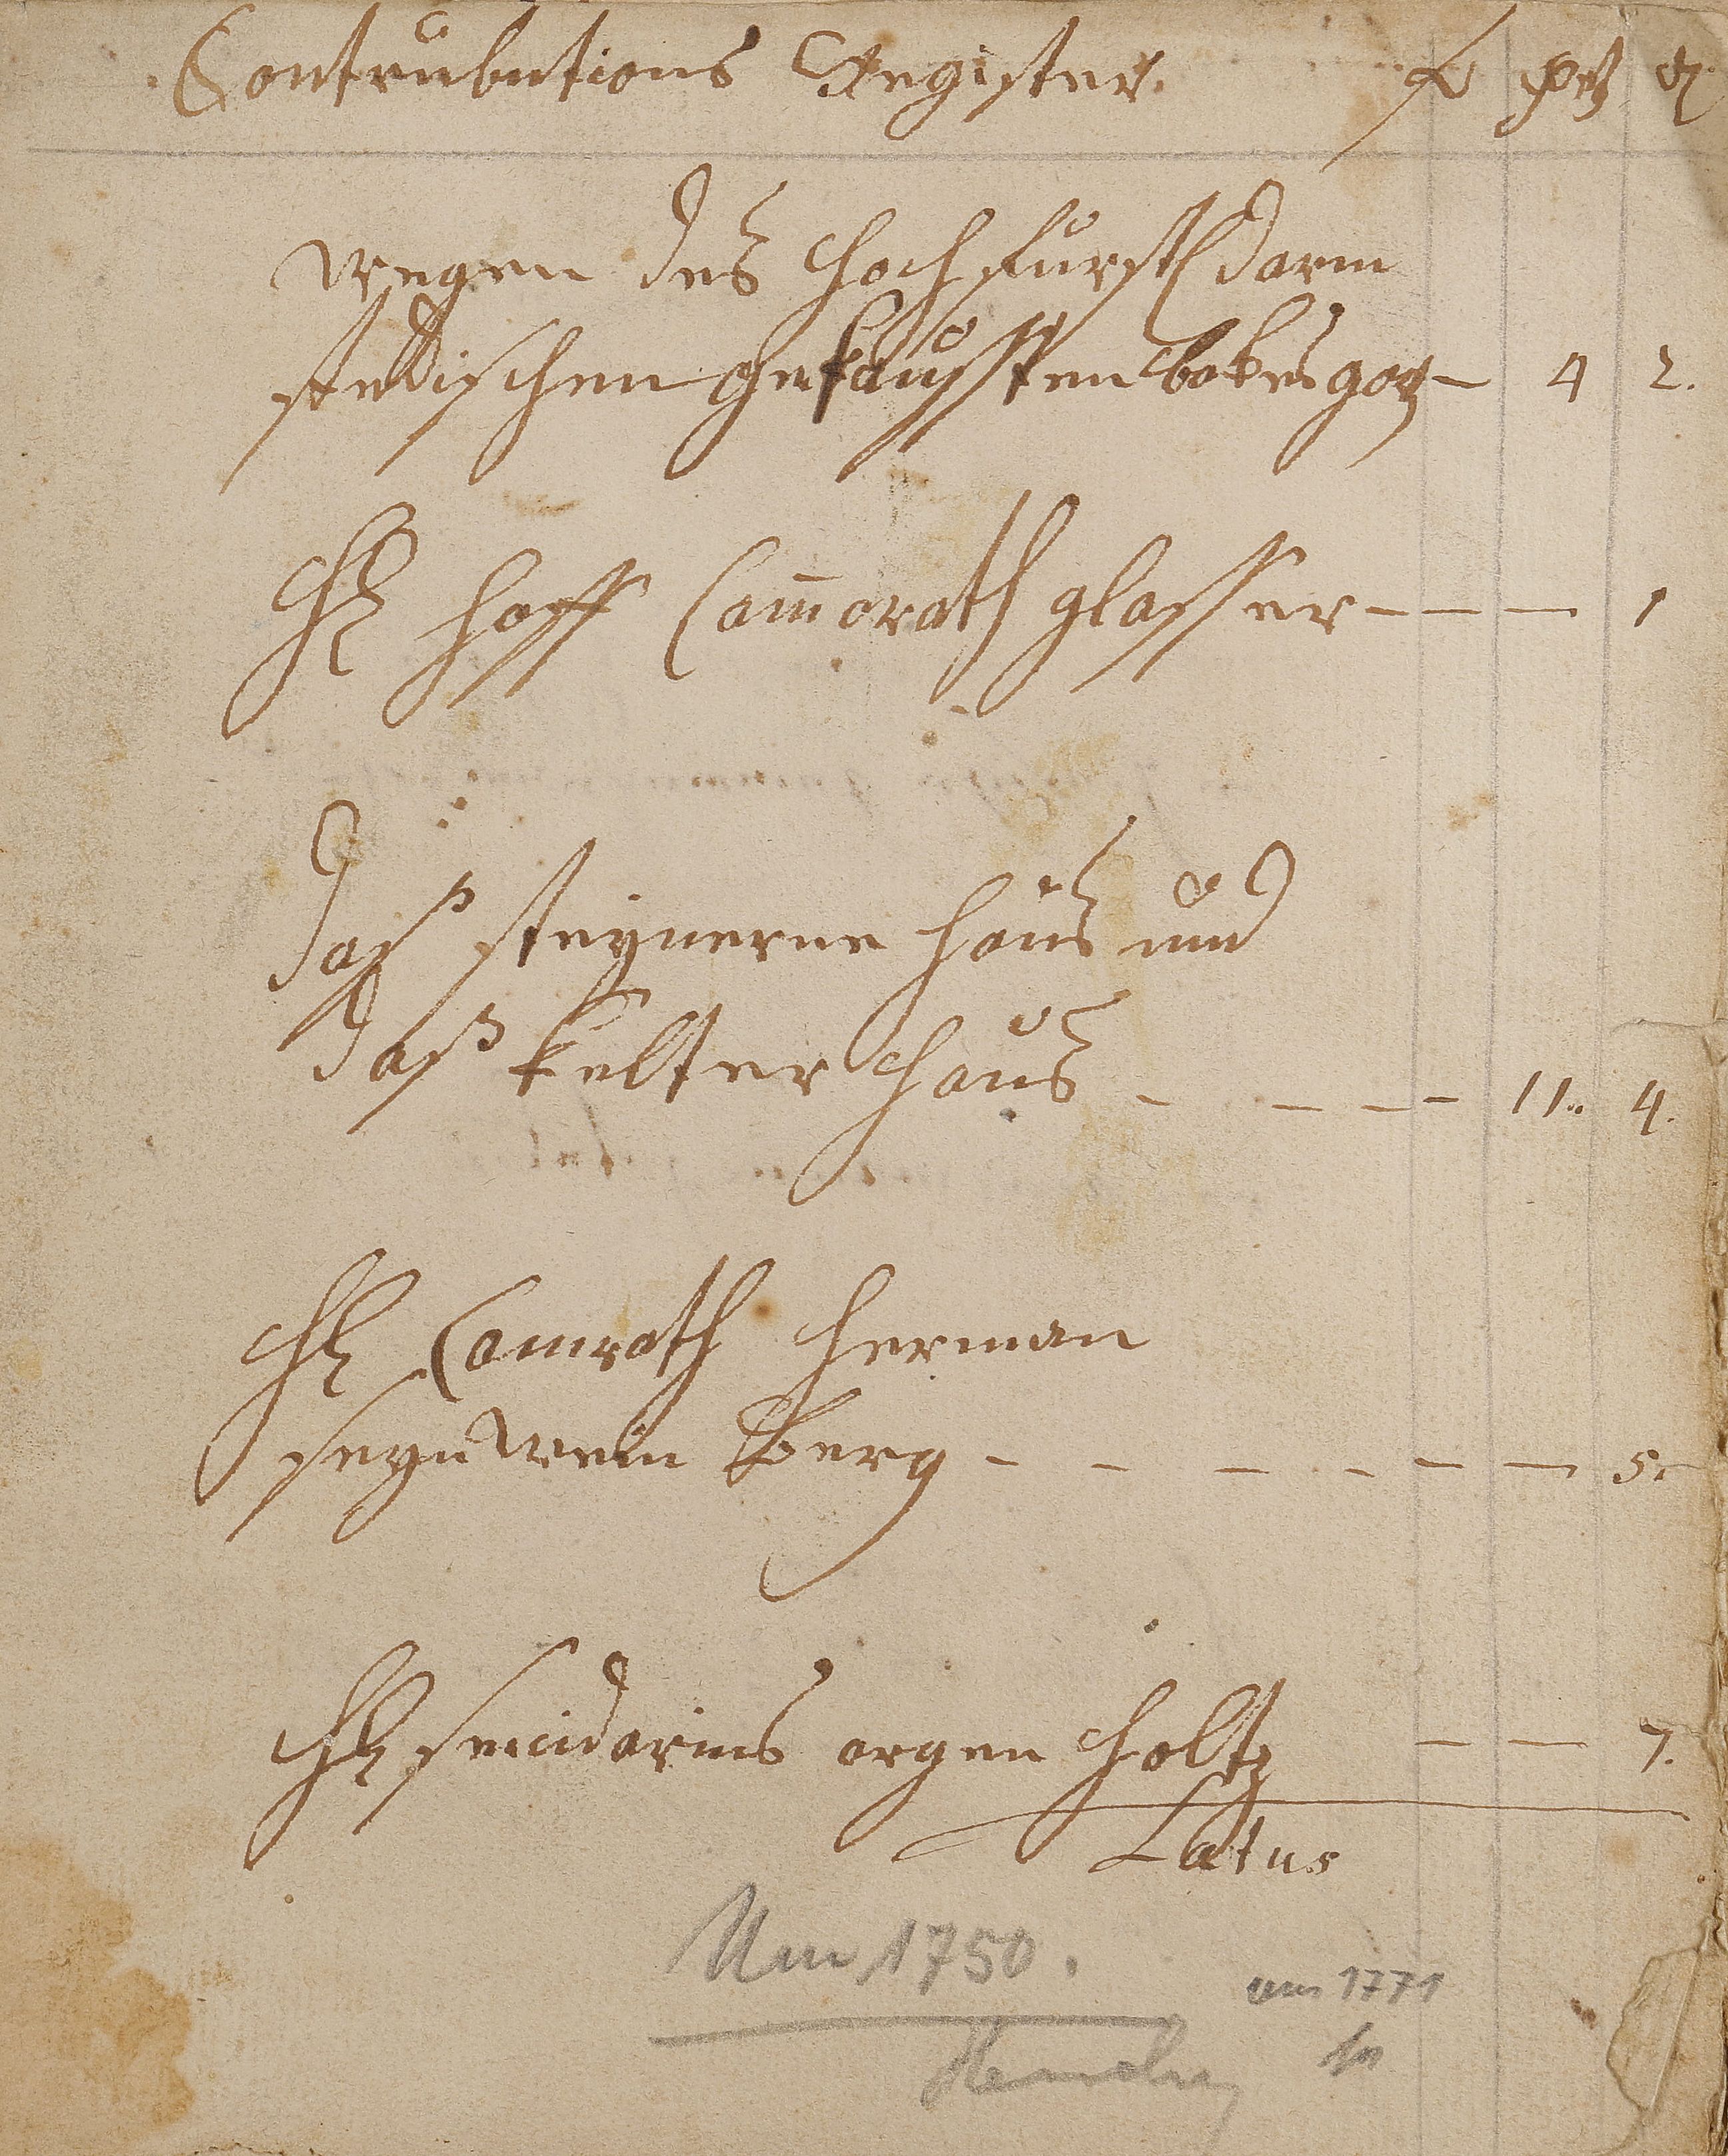 Contributions Register. fl xr ₰
wegen des hoch furstl darm
stedischen gekaufften
4 2.
H hoff Camorath glasser 1
Daß steynerne haus und
daß kelter haus 11. 4.
H Camrath Herman
seyn wein Berg 5.
H secindarius argen holtz 7.
Latus
Um 1750.
um 1771